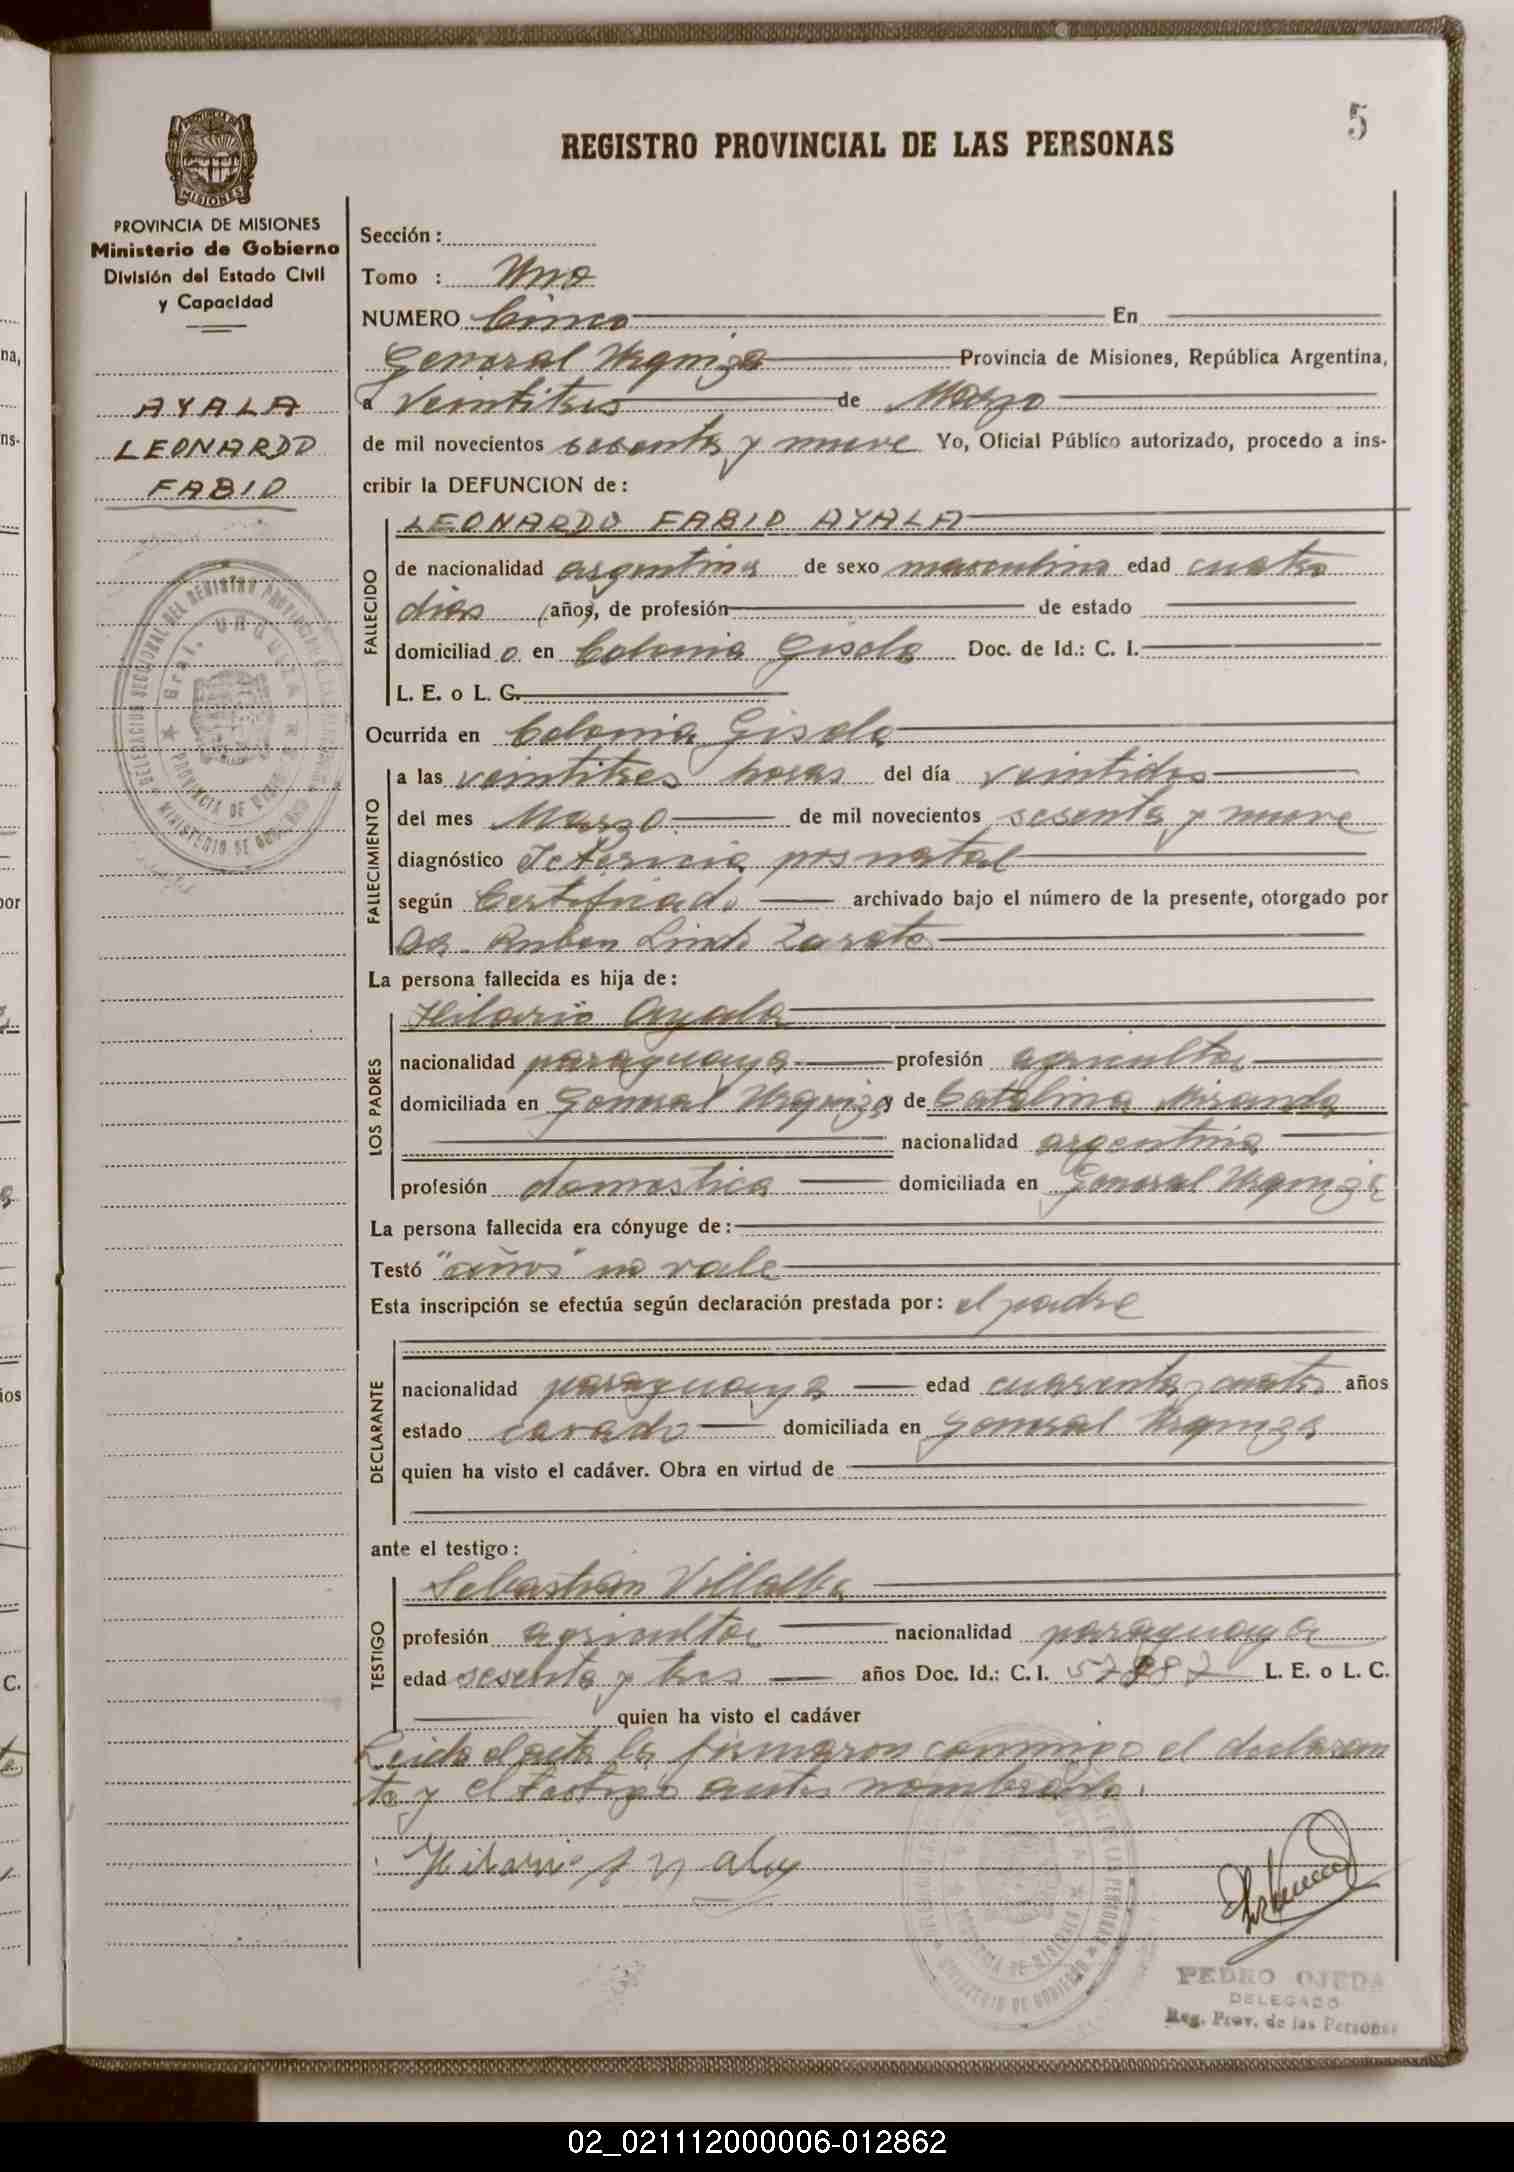 5
REGISTRO PROVINCIAL DE LAS PERSONAS
PROVINCIA DE MISIONES
Ministerio de Gobierno
División del Estado Civil
y Capacidad
AYALA
LEONARDO
FABIO
Sección:
Tomo : Uno
NUMERO Cinco En
General Urquiza Provincia de Misiones, República Argentina,
a Veintitres de Marzo
de mil novecientos sesenta y nueve Yo, Oficial Público autorizado, procedo a ins-
cribir la DEFUNCION de:
LEONARDO FABIO AYALA
FALLECIDO
de nacionalidad argentina de sexo masculino edad cuatro
dias (años), de profesión de estado
domiciliad o en Colonia Gisela Doc. de Id.: C. I.
L. E. o L. C.
Ocurrida en Colonia Gisela
FALLECIMIENTO
a las veintitres horas del día veintidos
del mes Marzo de mil novecientos sesenta y nueve
diagnóstico Ictericia posnatal
según Certificado archivado bajo el número de la presente, otorgado por
Ruben Zarate
La persona fallecida es hija de:
Hilario Ayala
LOS PADRES
nacionalidad paraguaya profesión agricultor
domiciliada en General Urquiza y de Catalina Miranda
nacionalidad argentina
profesión domestica domiciliada en General Urquiza
La persona fallecida era cónyuge de:
Testó "años" no vale
Esta inscripción se efectúa según declaración prestada por: el padre
DECLARANTE
nacionalidad paraguaya edad cuarenta y cuatro años
estado casado domiciliada en General Urquiza
quien ha visto el cadáver. Obra en virtud de
ante el testigo:
Sebastian Villalba
TESTIGO
profesión agricultor nacionalidad paraguaya
edad sesenta y tres años Doc. Id.: C. I. L. E. o L. C.
quien ha visto el cadáver
Leida el acta la firmaron conmigo el declaran
te y el testigo antes nombrado.
Hilario Ayala
PEDRO OJEDA
DELEGADO
Reg. Prov. de las Personas
02_021112000006-012862